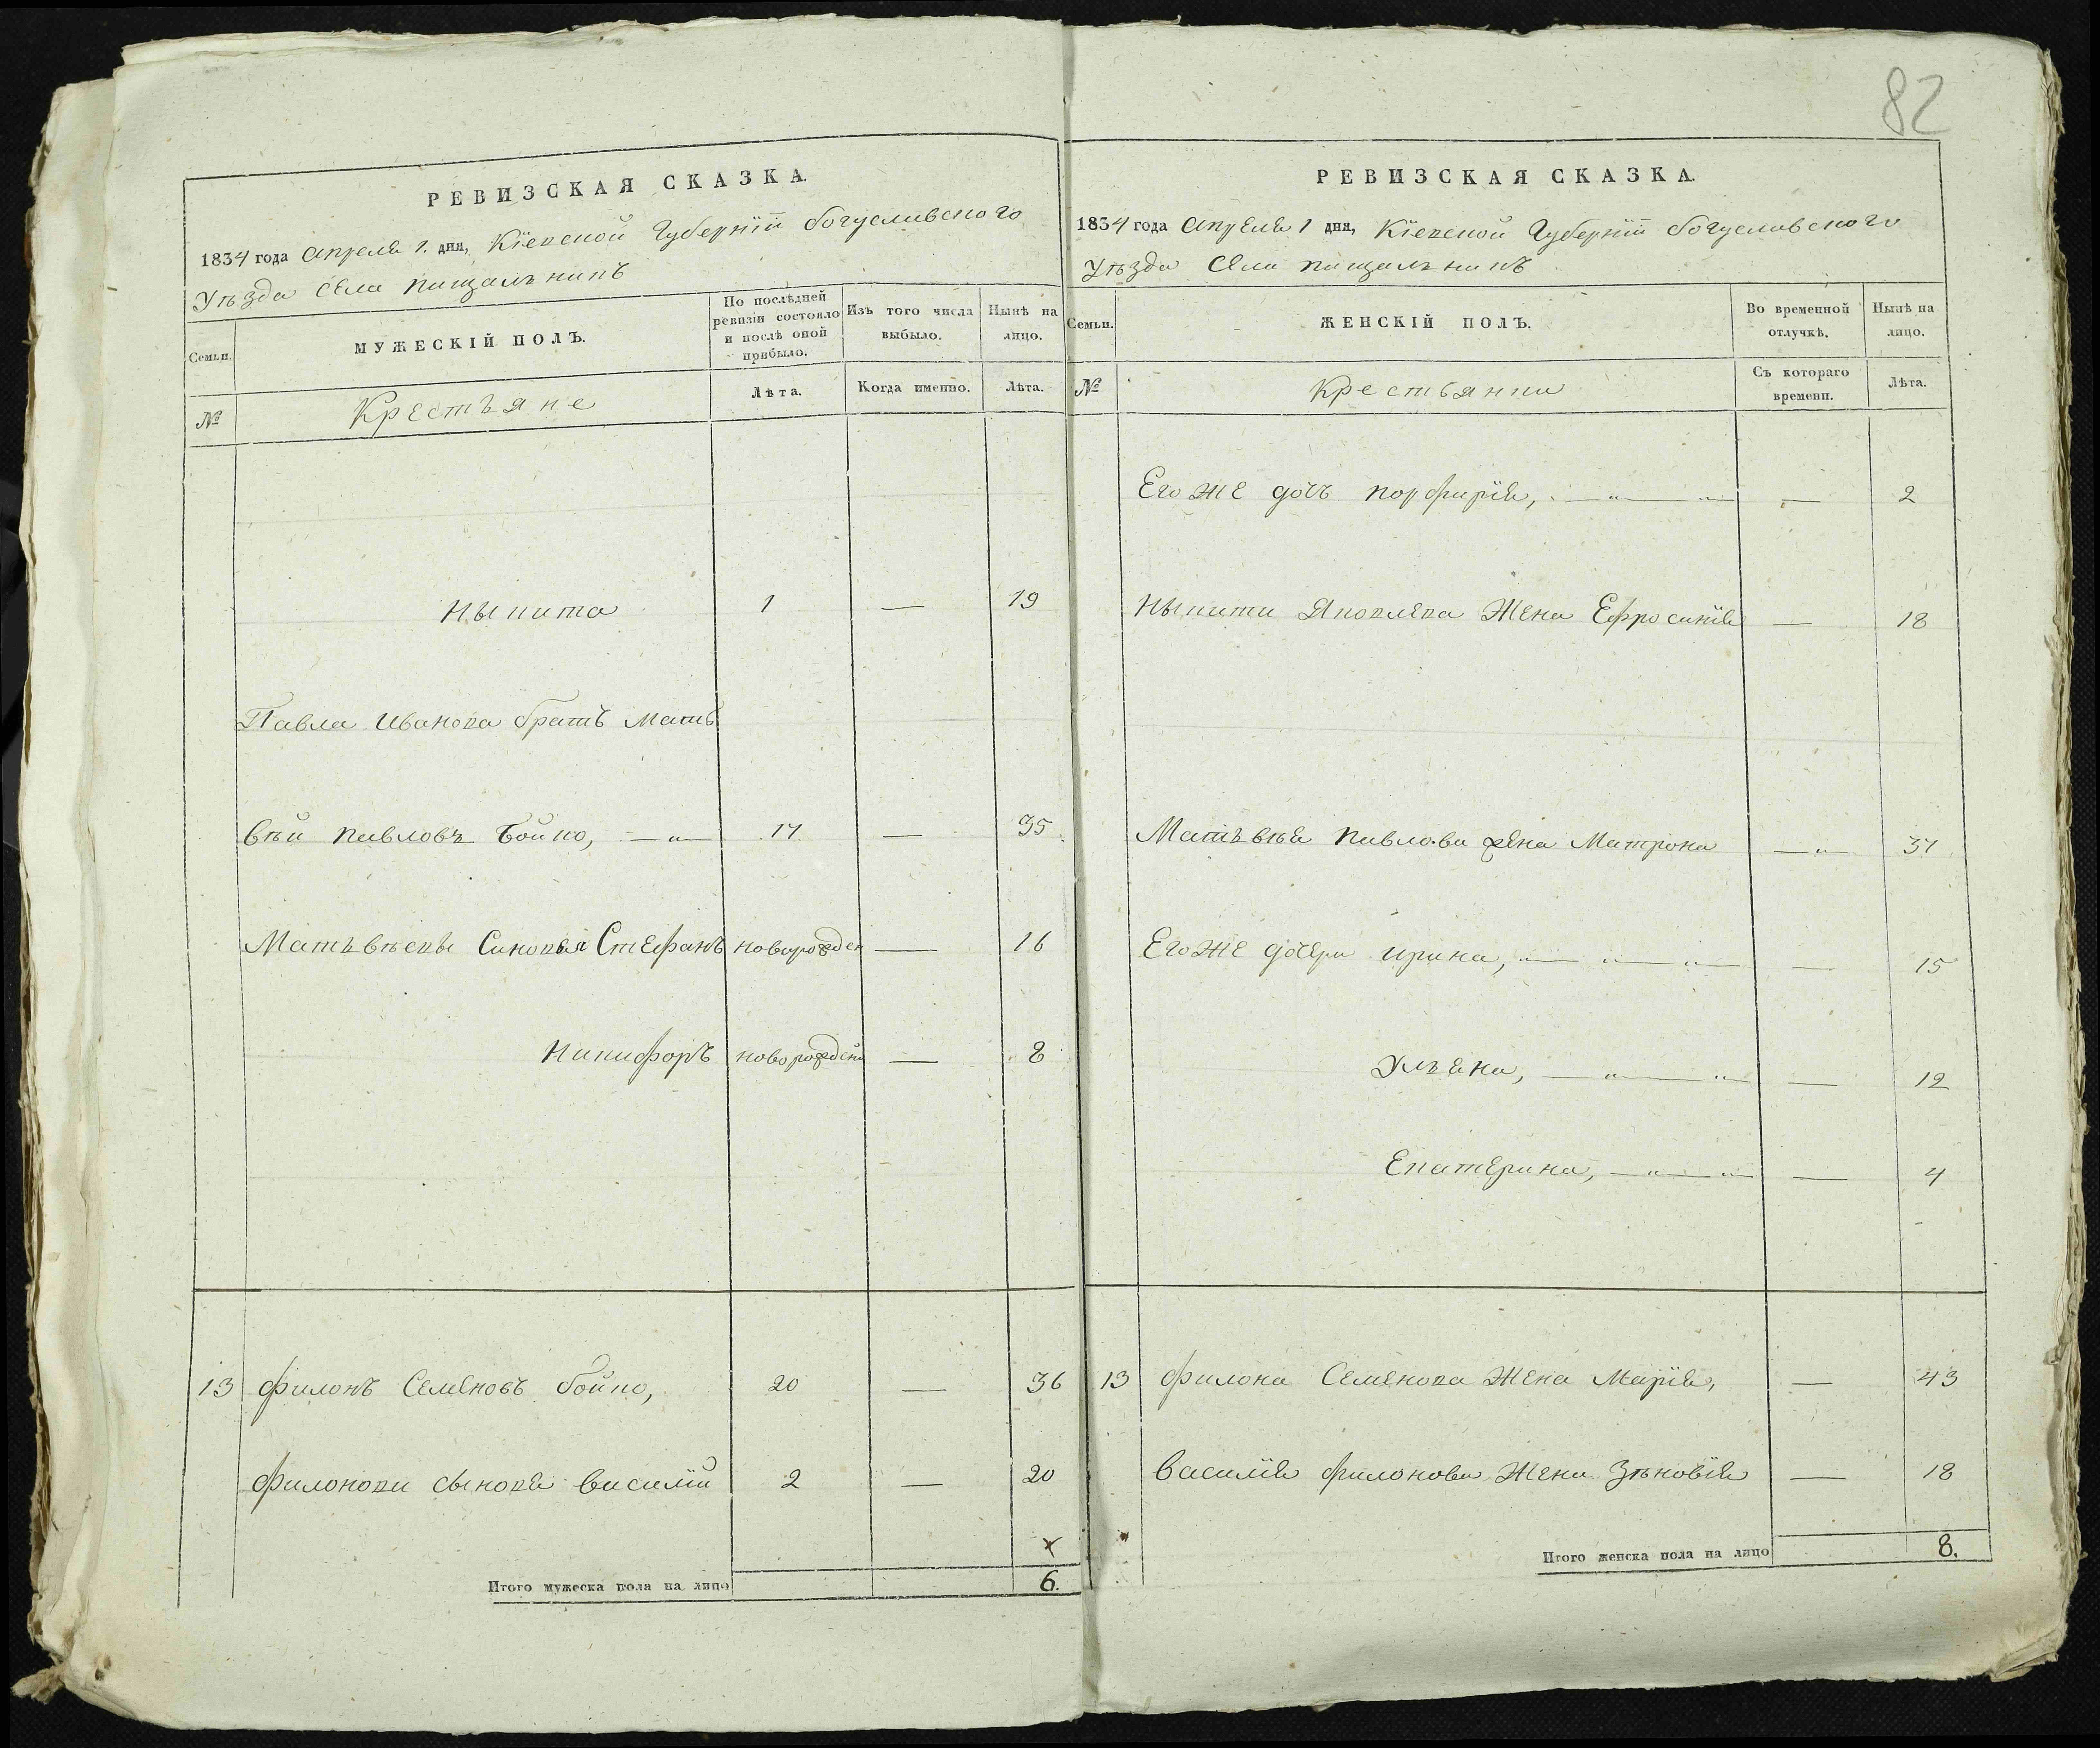 82
РЕВИЗСКАЯ СКАЗКА.
1834 года Апреля 1. дня, Кіевской Губерніи богуславского
Уѣзда Села пищальникъ
Семьи.
МУЖЕСКІЙ ПОЛЪ.
По послѣдней ревизіи состояло и послѣ оной прибыло.
Изъ того числа выбыло.
Нынѣ на лицо.
№
Крестъяне
Лѣта.
Когда именно.
Лѣта.
Никита 1 — 19
Павла Иванова братъ Матъ
вѣй павловъ бойко, — „ — 17 — 35
Матъвѣевы Сыновья Стефанъ новорожден — 16
Никифоръ новорожден — 8
13 филонъ Семеновъ бойко, 20 — 36
филонови сыновя василій 2 — 20
Итого мужеска пола на лицо 6.
РЕВИЗСКАЯ СКАЗКА.
1834 года Апреля 1 дня, Кіевской Губерніи богуславского
Уѣзда Села пищальникъ
Семьи.
ЖЕНСКІЙ ПОЛЪ.
Во временной отлучкѣ.
Нынѣ на лицо.
№
Крестьянки
Съ котораго времени.
Лѣта.
Его же дочь порфирія, — „ — „ — 2
Никиты Яковлева Жена Ефросинія — 18
Матъвѣя павлова жена Матрона — „ — 37
Его же дочери ирина, — „ — „ — 15
Ульяна, — „ — „ — 12
Екатерина, — „ — „ — 4
13 филона Семенова Жена Марія, — 43
василія филонова Жена Зѣновія — 18
Итого женска пола на лицо 8.